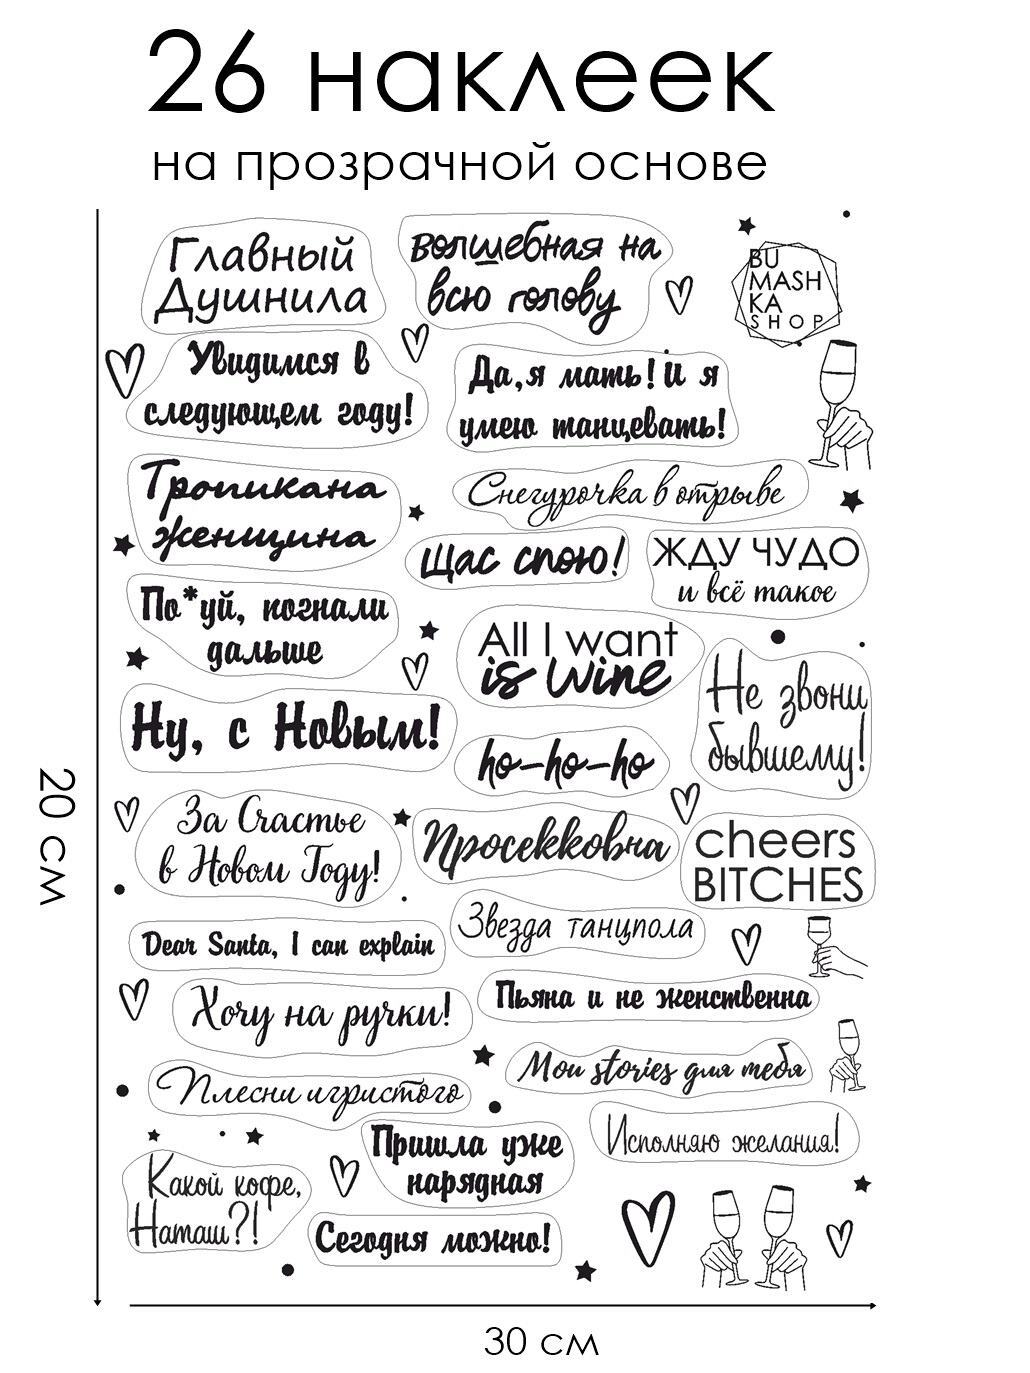 26 наклеек
на прозрачной основе
Главный
Душнила
волшебная на
всю голову
BU
MASH
KA
SHOP
Увидимся в
следующем году!
Да,я мать!И я
умею танцевать!
Тропикана
женщина
Снегурочка в отрыве
Щас спою!
ЖДУ ЧУДО
и всё такое
По*уй, погнали
дальше
All I want
is wine
Не звони
бывшему!
Ну, с Новым!
ho-ho-ho
За Счастье
в Новом Году!
Просекковна
cheers
BITCHES
Звезда танцпола
Dear Santa, I can explain
Хочу на ручки!
Пьяна и не женственна
Мои stories для тебя
Плесни игристого
Исполняю желания!
Пришла уже
нарядная
Какой кофе,
Наташ?!
Сегодня можно!
20 см
30 см